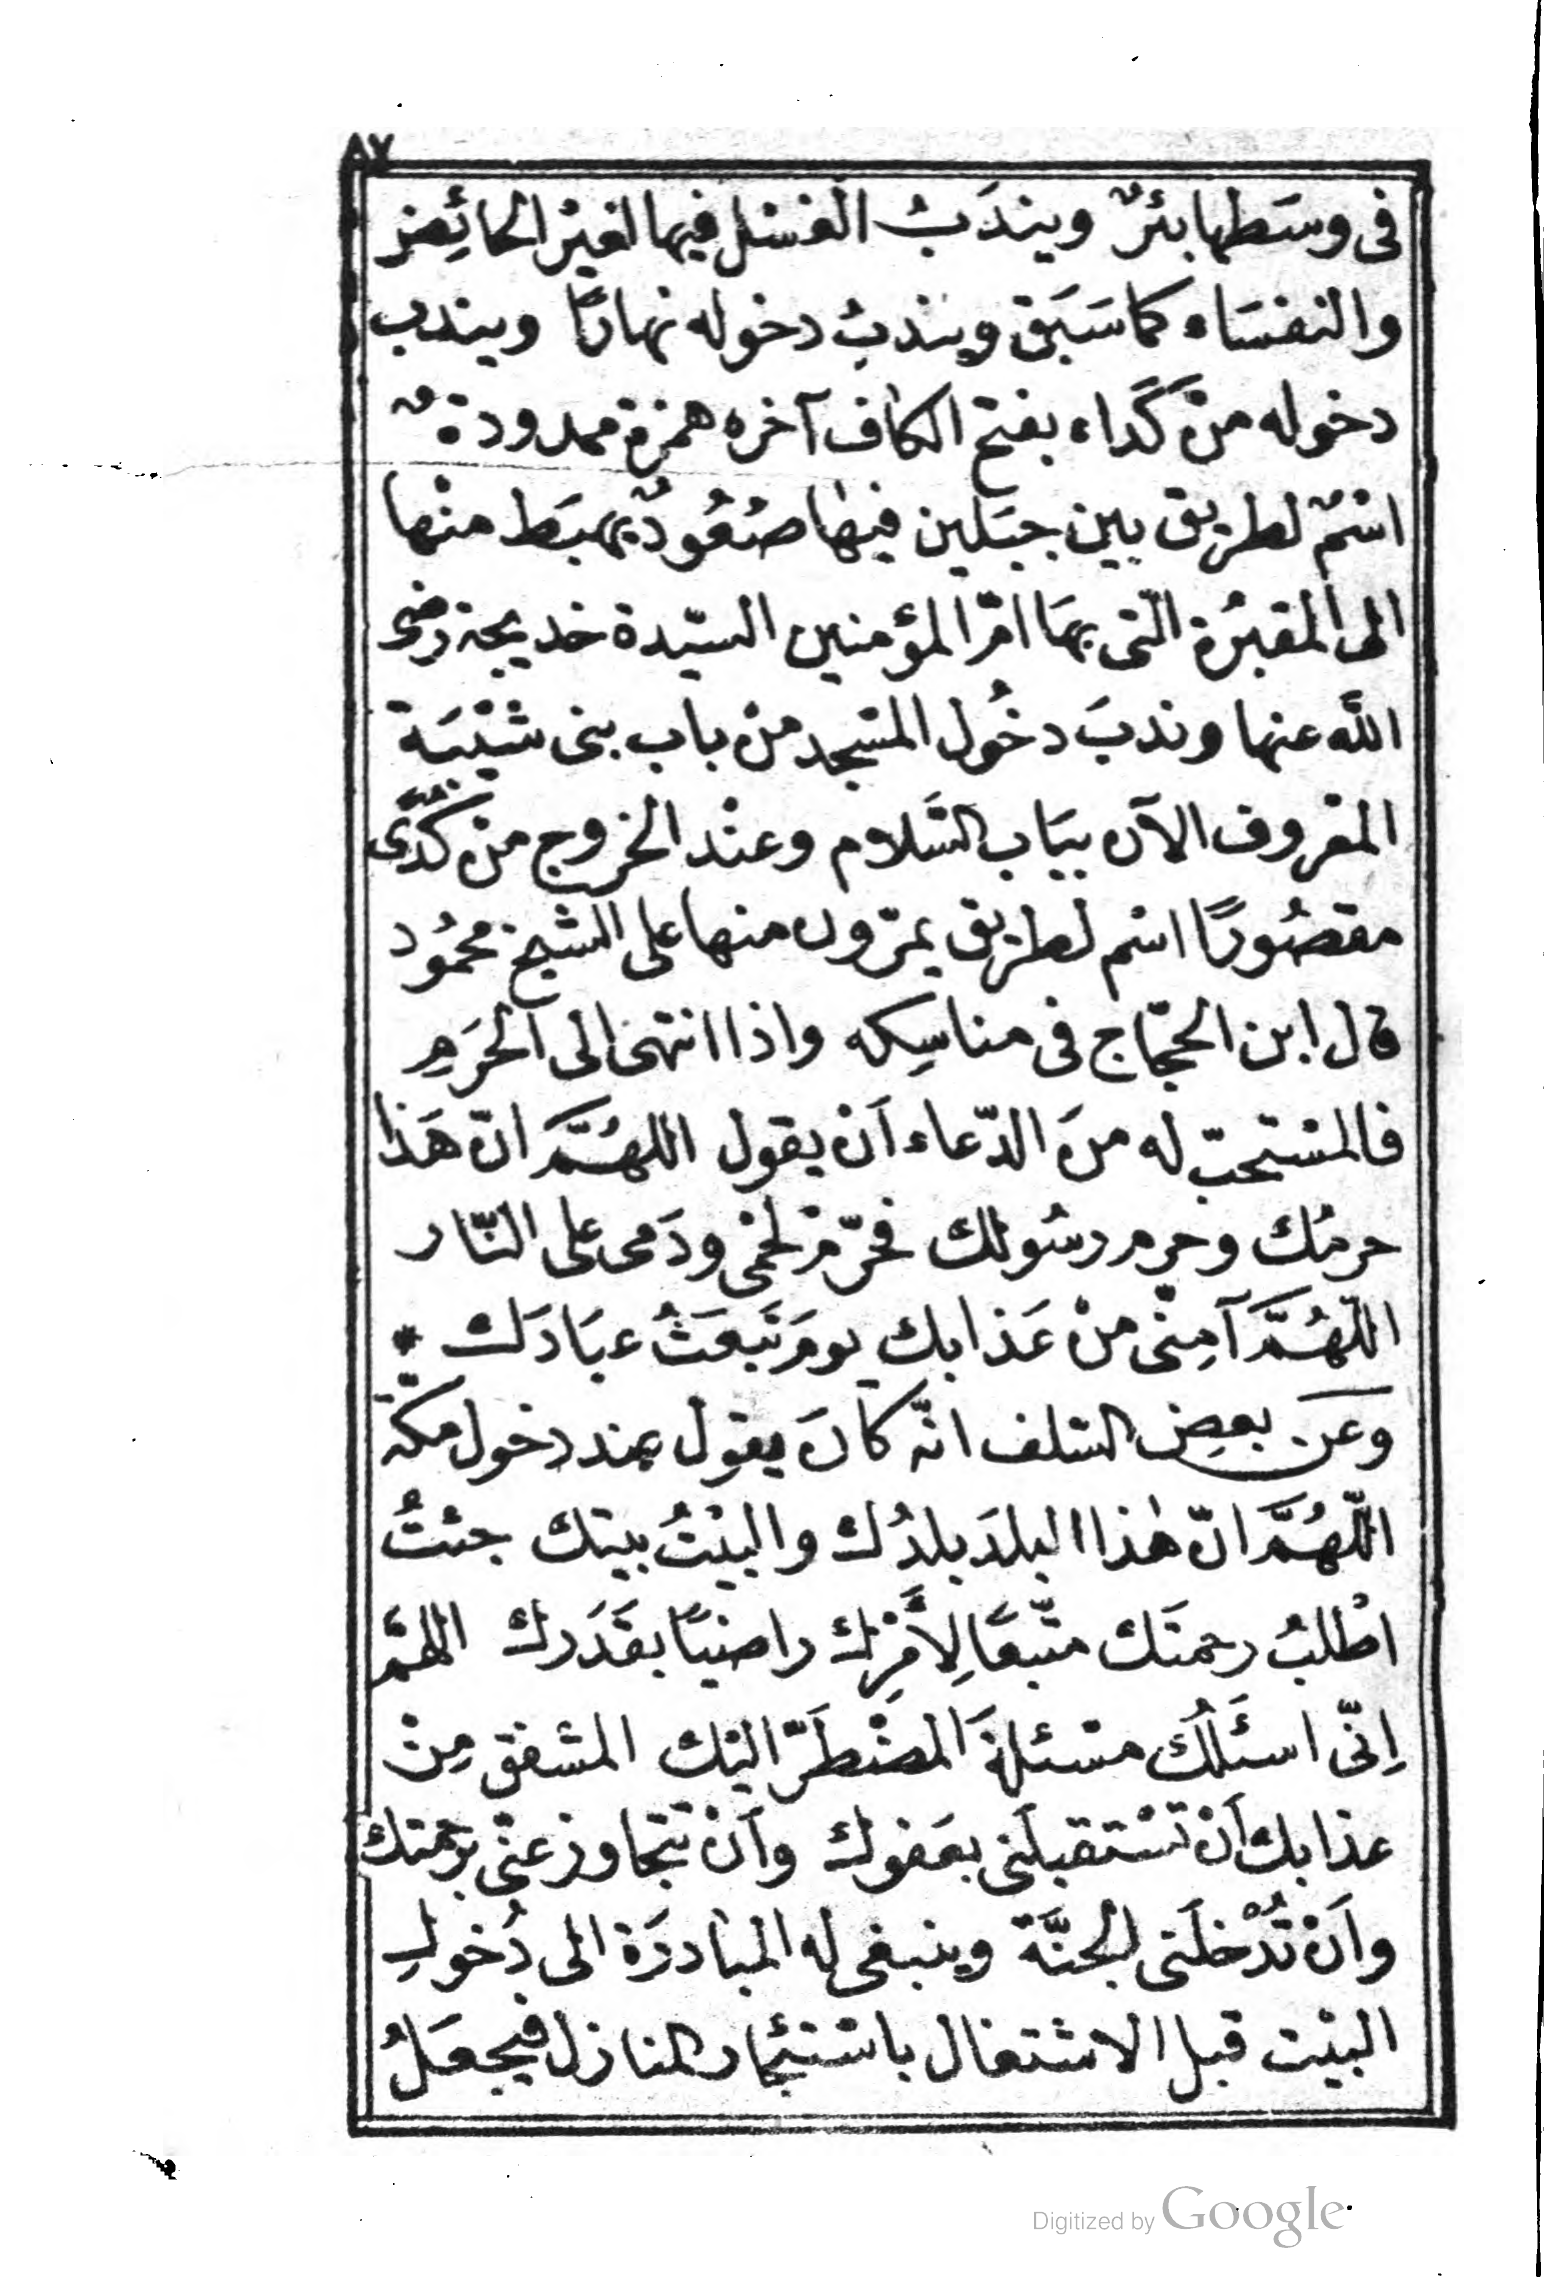 ٨٧
فى وسَطها بئرٌ ويندَبُ الغسْل فيها لغيْر الحائِض
والنفسَاء كما سَبَق ويندبُ دخوله نهارًا ويندب
دخوله منْ كَدَاء بفتح الكاف آخره همزة ممدودةٌ
اسْمٌ لطريق بين جبَلين فيهَا صُعُودٌ يهبَط منْها
الى المقبَرة الّتى بهَا امّ المؤمنين السيّدة خديجة رضى
اللّه عنها وندبَ دخُول المسْجد منْ باب بنى شَيْبَة
المعْروف الآن ببَاب السَّلام وعنْد الخروج منْ كُدًى
مقصُورًا اسْم لطريق يمرّون منها على الشيخ محمُود
قال ابن الحجّاج فى مناسِكه واذا انتهىٰ الى الحَرَمِ
فالمسْتحبّ له منَ الدّعاء اَنْ يقول اللهُمَّ انّ هَذا
حرمُك وحرم رسُولك فحرّمْ لحْمى ودَمى على النّار
اللّهُمَّ آمِنّى منْ عَذابك يومَ تَبعَثُ عبَادَك *
وعَن بعضِ السّلف انّه كانَ يقول عند دخول مكّة
اللّهُمَّ انّ هٰذا البلدَ بلدُك والبيْتُ بيتك جئتُ
اطْلبُ رحمتَك متّبعًا لِأَمْرِك راضيًا بقَدَرك اللهمّ
اِنّى اسئَلُك مسْئلةَ المضْطَرّ اليْك المشفق مِنْ
عذابك اَنْ تسْتقبلَنى بعَفوك واَنْ تتجاوز عنّى برَحْمتك
واَنْ تُدْخلَنى الجنَّة وينبغى له المبَادرَة الى دُخولِ
البيْت قبل الاشتغال باسْتئجار المنازل فيجعَلُ
Digitized by Google